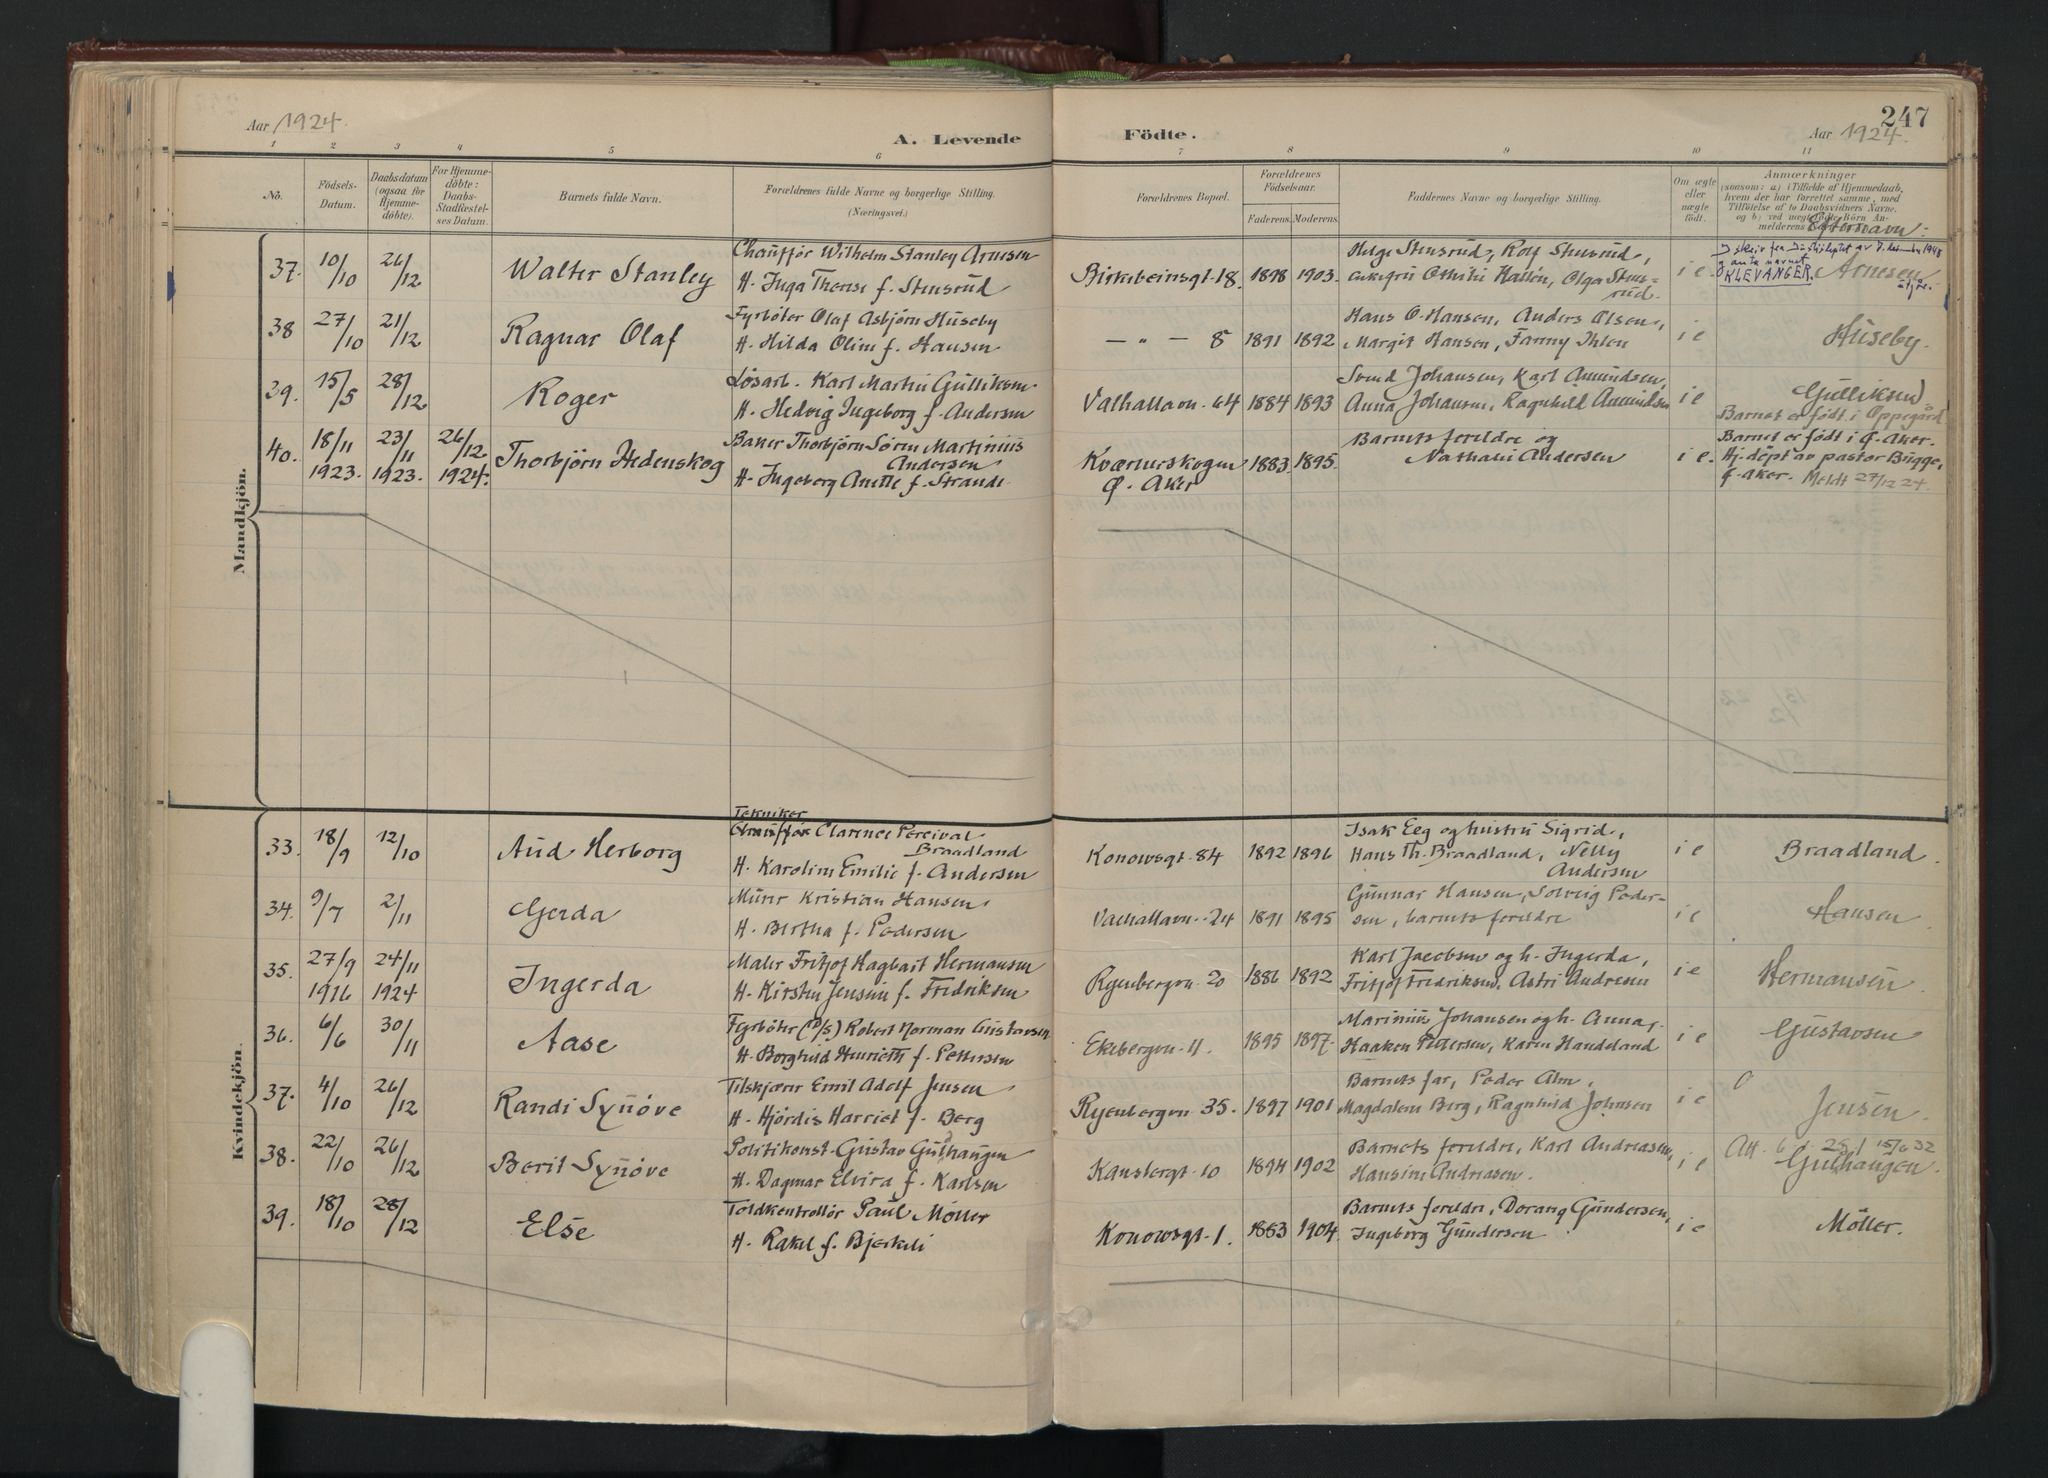 247
Aar 1924.
A. Levende
Födte.
Aar 1924.
1 2 3 4 5 6 7 8 9 10 11
No.
Födsels-
Datum.
Daabsdatum
(ogsaa for
Hjemme-
döbte).
For Hjemme-
döbte:
Daabs-
Stadfæstel-
ses Datum.
Barnets fulde Navn.
Forældrenes fulde Navne og borgerlige Stilling.
(Næringsvei.)
Forældrenes Bopæl.
Forældrenes
Födselsaar.
Faderens. Moderens.
Faddernes Navne og borgerlige Stilling.
Om ægte
eller
uægte
födt.
Anmærkninger
(saasom: a) i Tilfælde af Hjemmedaab,
hvem der har forrettet samme, med
Tilföielse af to Daabsvidners Navne.
og b) ved uægtefödte Börn An-
melderens
Efternavn:
Mandkjön.
37. 10/10 26/12 Walter Stanley
Chaufför Wilhelm Stanley Arnesen
H. Inga Therese f. Stensrud
Birkebeinsgt. 18. 1898 1903.
Helge Stensrud, Rolf Stensrud,
Ottilie Hallén, Olga Stens-
rud.
i e. Arnesen
KLEVANGER.
38 27/10 21/12 Ragnar Olaf
Fyrböter Olaf Asbjörn Huseby
H. Hilda Oline f. Hansen
— " — 8 1891 1892
Hans O. Hansen, Anders Olsen,
Margit Hansen, Fanny Ihlen
i e Huseby.
39. 15/5 28/12 Roger
Lösarb. Karl Martin Gulliksen
H. Hedvig Ingeborg f. Andersen
Valhallavn. 64 1884 1893
Svend Johansen, Karl Amundsen,
Anna Johansen, Ragnhild Amundsen
i e Gulliksen
Barnet er födt i Oppegård
40. 18/11 1923. 23/11 1923. 26/12 1924. Thorbjörn Hedenskog
Baker Thorbjörn Sören Martinius
Andersen
H. Ingeborg Anette f. Strande
Kværnerskogen
Ø. Aker
1883. 1895.
Barnets foreldre og
Nathalie Andersen
i e.
Barnet er födt i Ø. Aker.
Hj. döpt av pastor Bugge,
Ø. Aker. Meldt 27/12 24.
Kvindekjön.
33. 18/9 12/10 Aud Herborg
Tekniker
Chaufför Clarence Percival
Braadland
H. Karoline Emilie f. Andersen
Konowsgt. 84 1892 1896
Isak Eeg og hustru Sigrid,
Hans Th. Braadland, Nelly
Andersen
i e Braadland.
34. 9/7 2/11 Gerda
Murer Kristian Hansen
H. Bertha f. Pedersen
Valhallavn. 24 1891 1895
Gunnar Hansen, Solveig Peder-
sen, barnets foreldre
i e Hansen
35. 27/9 1916 24/11 1924 Ingerda
Maler Fritjof Hagbart Hermansen
H. Kirsten Jensine f. Fredriksen
Ryenbergvn. 20 1886 1892
Karl Jacobsen og h. Ingerda,
Fritjof Fredriksen, Astri Andresen
i e Hermansen
36. 6/6 30/11 Aase
Fyrböter (D/S) Robert Norman Gustavsen
H. Borghild Henriette f. Pettersen
Ekebergvn. 11. 1895 1897.
Marinius Johansen og h. Anna,
Haaken Pettersen, Karen Handeland
i e Gustavsen
37. 4/10 26/12 Randi Synöve
Tilskjærer Emil Adolf Jensen
H. Hjördis Harriet f. Berg
Ryenbergvn. 35. 1897 1901
Barnets far, Peder Alm,
Magdalene Berg, Ragnhild Johnsen
i e Jensen
38. 22/10 26/12 Berit Synöve
Politikonst. Gustav Gulhaugen
H. Dagmar Elvira f. Karlsen
Kansbergt. 10 1894 1902
Barnets foreldre, Karl Andreasen,
Hansine Andreasen.
i e Att. 15/6 32
Gulhaugen.
39. 18/10 28/12 Else
Toldkontrollör Paul Möller
H. Rakel f. Bjerkeli
Konowsgt. 1. 1883 1904.
Barnets foreldre, Gundersen,
Ingeborg Gundersen
i e Möller.